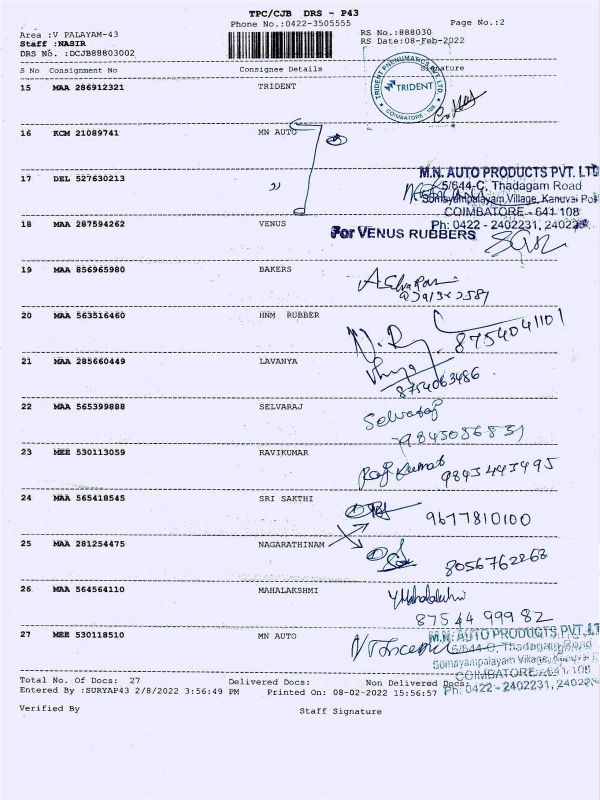 TPC/CJB DRS - P43
Phone No.:0422-3505555
Page No.:2
Area :V PALAYAM-43
RS No.:888030
Staff :NASIR
RS Date:08-Feb-2022
DRS No. :DCJB88803002
S No Consignment No Consignee Details Signature
15 MAA 286912321 TRIDENT
TRIDENT PNEUMATICS PVT. LTD.
TRIDENT
COIMBATORE - 108
16 KCM 21089741 MN AUTO
17 DEL 527630213 "
M.N. AUTO PRODUCTS PVT. LTD
5/644-C, Thadagam Road
Somayampalayam Village, Kanuvai Post
COIMBATORE - 641 108
Ph: 0422 - 2402231,
18 MAA 287594262 VENUS
For VENUS RUBBERS
19 MAA 856965980 BAKERS
20 MAA 563516460 HNM RUBBER
8754041101
21 MAA 285660449 LAVANYA
8754063486
22 MAA 565399888 SELVARAJ
Selvaraj
23 MEE 530113059 RAVIKUMAR
9843443495
24 MAA 565418545 SRI SAKTHI
9677810100
25 MAA 281254475 NAGARATHINAM
8056762268
26 MAA 564564110 MAHALAKSHMI
Y Mahalakshmi
87544 999 82
27 MEE 530118510 MN AUTO
M.N. AUTO PRODUCTS PVT. LT
5/644-C, Thadagam Road
Somayampalayam Village, Kanuvai P
COIMBATORE - 641 108
Ph: 0422 - 2402231,
Total No. Of Docs: 27 Delivered Docs: Non Delivered Docs:
Entered By :SURYAP43 2/8/2022 3:56:49 PM Printed On: 08-02-2022 15:56:57
Verified By Staff Signature